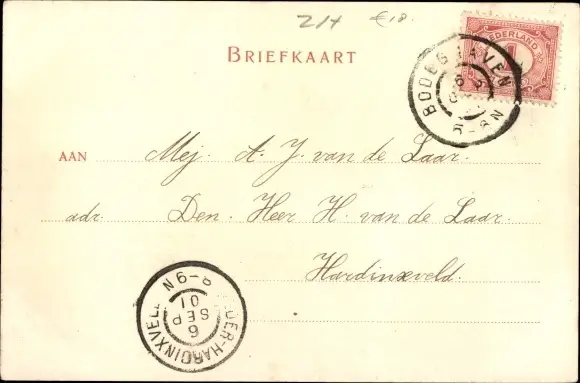 Z/H €18.
BRIEFKAART
NEDERLAND
1
BODEGRAVEN
6-8N
AAN Mej. A. J. van de Laar.
adr. Den Heer H. van de Laar.
Hardinxveld.
8-9N
6
SEP
01
-HARDINXVELD